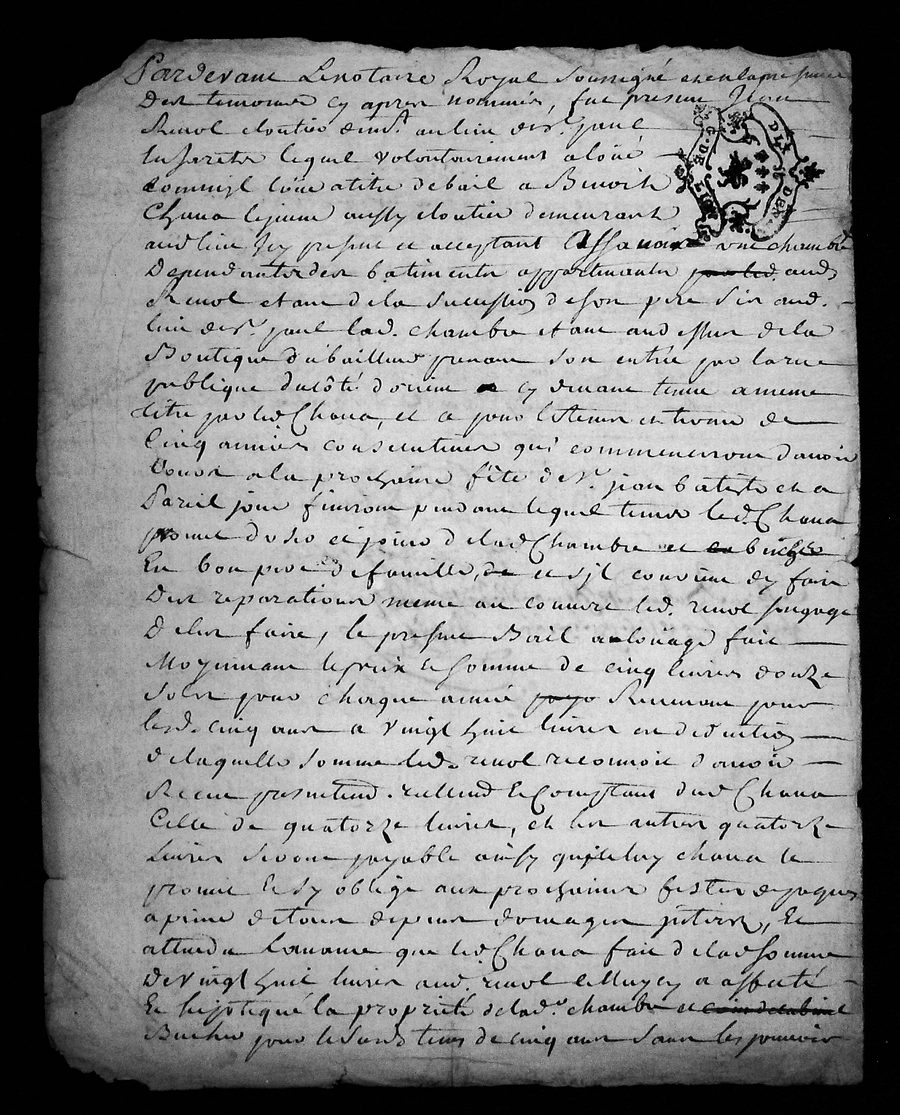 Pardevant Lenotaire Royal Soussigné et en la presence
Des temoins cy apres nommés, fut present Jean
Revol cloutier dem.t au lieu de s.t paul
lequel volontairement a loüé
comme il loüe a titre de bail a Benoist
Chana le jeune aussy cloutier demeurant
aud lieu Icy present et acceptant Assavoir une chambre
Dependantes des batiments appartenants par led. aud.
Revol etant de la Sucession de son pere Sis aud.
lieu de s.t paul lad. chambre etant audessus de la
Boutique prenant son entrée par la rue
publique du côté d'orient cy devant tenue a meme
titre par led. Chana, et a pour le tems et terme de
Cinq années consecutives qui commenceront d'avoir
Cours a la prochaine fête de s.t jean batiste et a
Pareil jour finiront pendant lequel tems led. Chana
promet d'user et jouir de lad. Chambre et bucher
En bon pere de famille, et s'il convient d'y faire
Des reparations meme au couvert led. revol s'engage
De les faire, le present Bail a loüage fait
Moyennant le prix et somme de cinq livres douze
sols pour chaque année Revenant pour
lesd. cinq ans a vingt huit livres en deduction
de laquelle somme led. revol reconnoit d'avoir
Receu presentement reellement et Comptant dud Chana
Celle de quatorze livres, et les autres quatorze
Livres seront payable ainsy que led. Chana le
promet et s'y oblige aux prochaines festes de paques
a peine de tous depens domages interets, Et
attendu l'avance que led. Chana fait de lad. somme
de vingt huit livres aud. revol a affecté
Et hipotequé la propriété de lad.e chambre et
Bucher pour le susd. tems de cinq ans sans les pouvoir